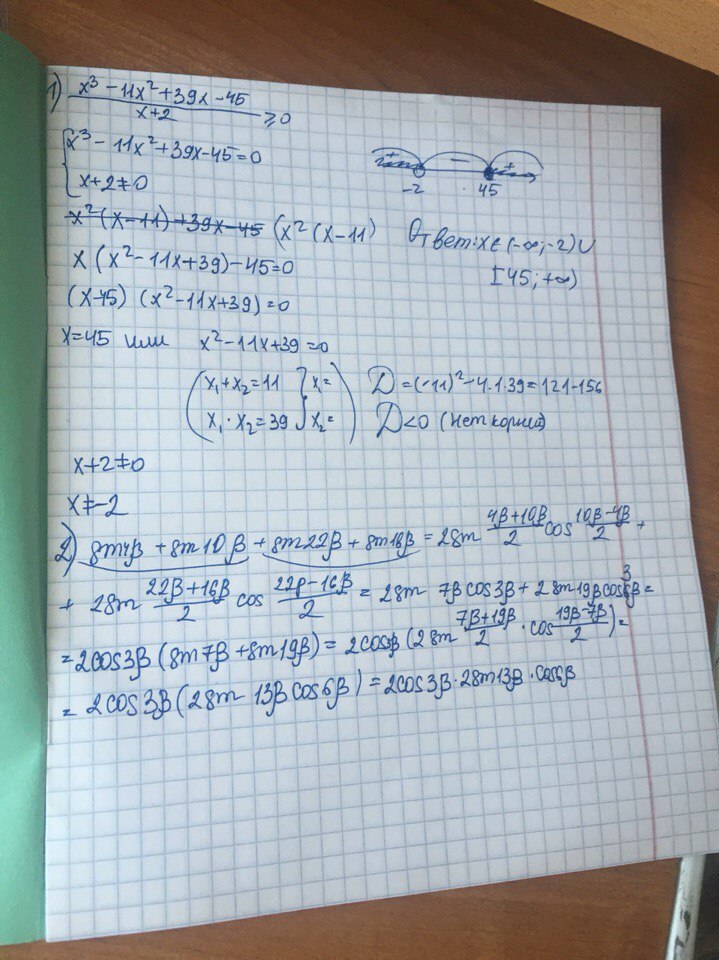 1) (x³ - 11x² + 39x - 45)/(x+2) ≥ 0
{x³ - 11x² + 39x - 45 = 0
x+2 ≠ 0
+ − +
-2 45
x²(x-11)+39x-45 (x²(x-11)
Ответ: x ∈ (-∞; -2) ∪
[45; +∞)
x(x² - 11x + 39) - 45 = 0
(x-45) (x² - 11x + 39) = 0
x = 45 или x² - 11x + 39 = 0
(x₁ + x₂ = 11 } x₁ =
x₁ · x₂ = 39 } x₂ = )
D = (-11)² - 4·1·39 = 121 - 156
D < 0 (нет корней)
x+2 ≠ 0
x ≠ -2
2) sin4β + sin10β + sin22β + sin16β = 2sin (4β+10β)/2 cos (10β-4β)/2 +
+ 2sin (22β+16β)/2 cos (22β-16β)/2 = 2sin 7β cos3β + 2sin19β cos3β =
= 2cos3β (sin7β + sin19β) = 2cos3β (2sin (7β+19β)/2 · cos (19β-7β)/2) =
= 2cos3β (2sin 13β cos6β) = 2cos3β · 2sin13β · cos6β